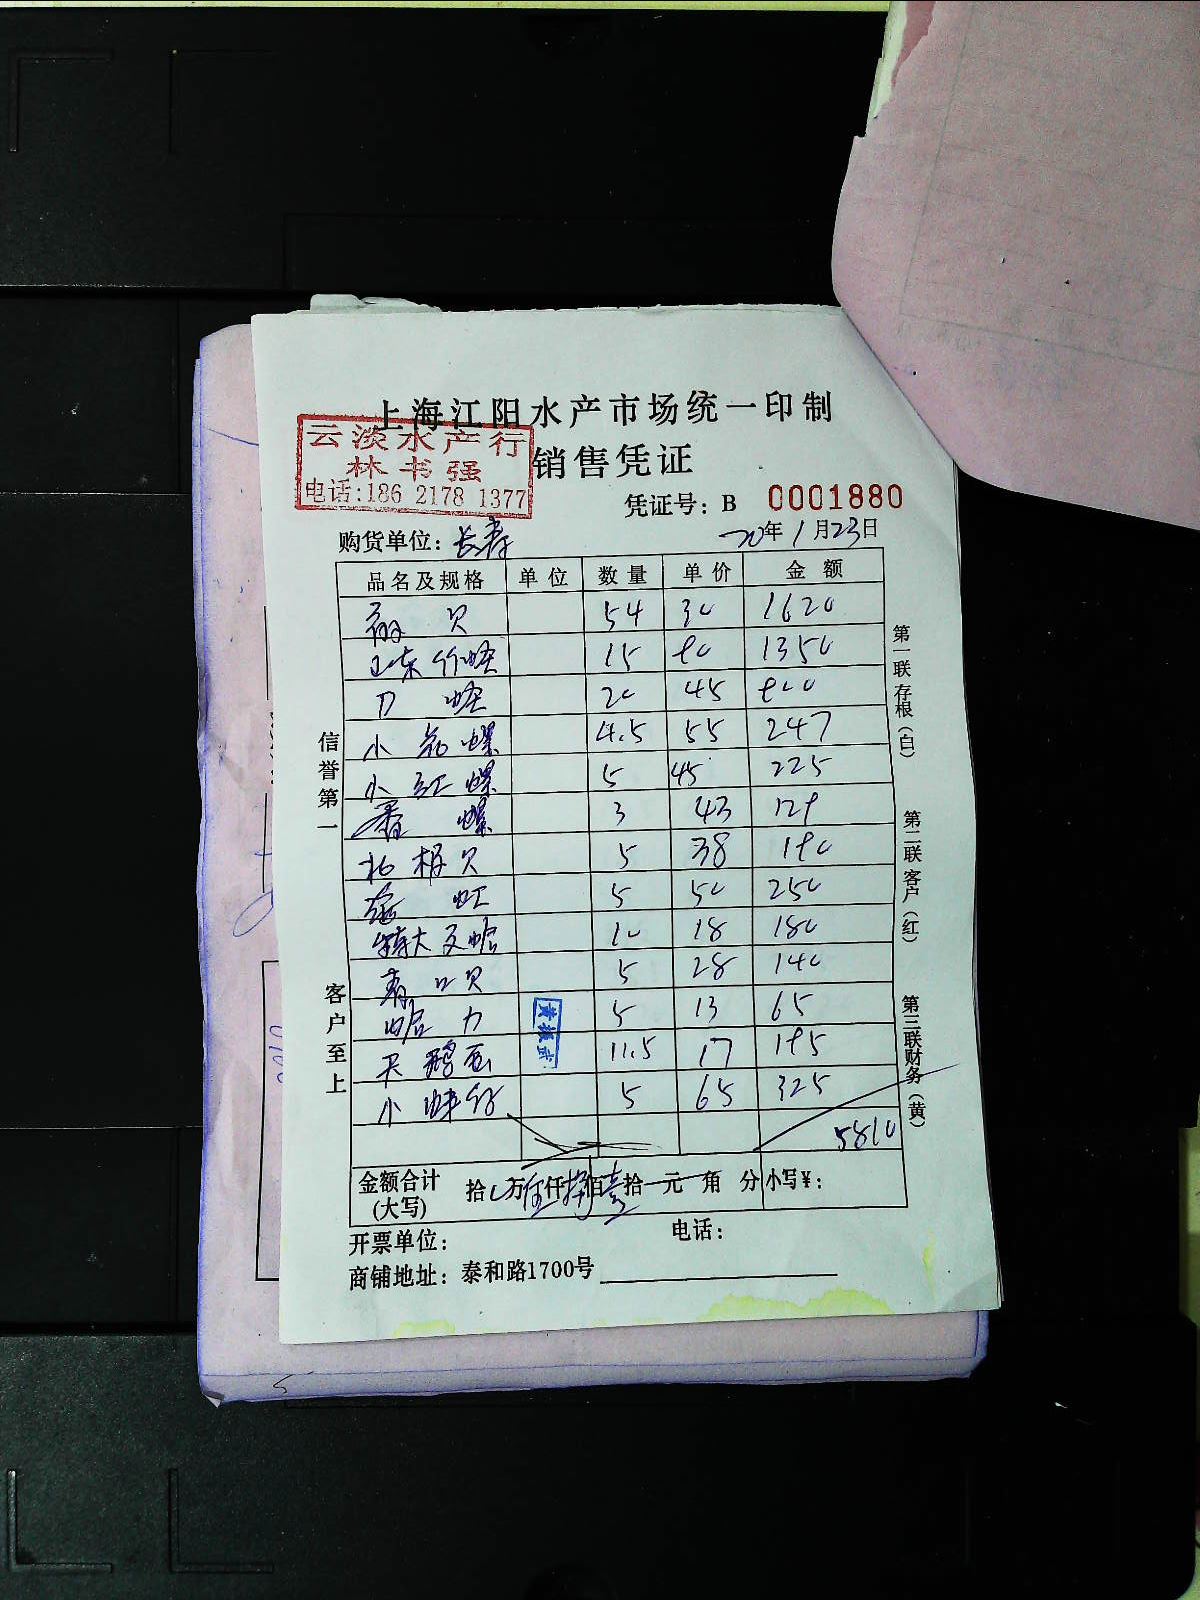 上海江阳水产市场统一印制
云淡水产行
林书强
电话:186 2178 1377
销售凭证
凭证号: B 0001880
购货单位: 长寿 20年1月23日
品名及规格 单位 数量 单价 金额
贝 54 30 1620
山东竹蛏 15 90 1350
刀蛏 20 45 900
小花螺 4.5 55 247
小红螺 5 45 225
香螺 3 43 129
北极贝 5 38 190
虹 5 50 250
特大文蛤 10 18 180
青口贝 5 28 140
蛤力 5 13 65
天鹅蛋 11.5 17 195
小 仔 5 65 325
5810
金额合计
(大写)
拾 万伍仟捌佰壹拾元角分 小写¥:
开票单位: 电话:
商铺地址: 泰和路1700号
信誉第一
客户至上
第一联 存根(白)
第二联 客户(红)
第三联 财务(黄)